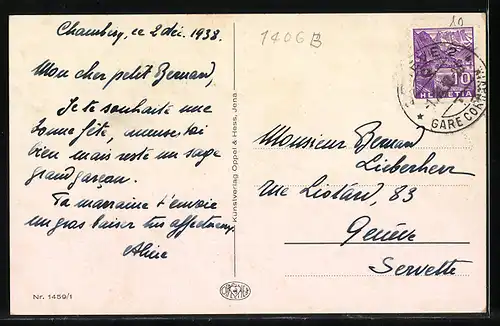 Chambésy, ce 2 déc. 1938.
Mon cher petit Bernard,
Je te souhaite une
bonne fête, amuse toi
bien mais reste un sage
grand garçon.
Ta marraine t'envoie
un gros baiser très affectueux
Aline
Nr. 1459/1
Kunstverlag Oppel & Hess, Jena
1406
10
10
HELVETIA
GARE CORNAVIN
Monsieur Bernard
Lieberherr
rue Liotard, 83
Genève
Servette